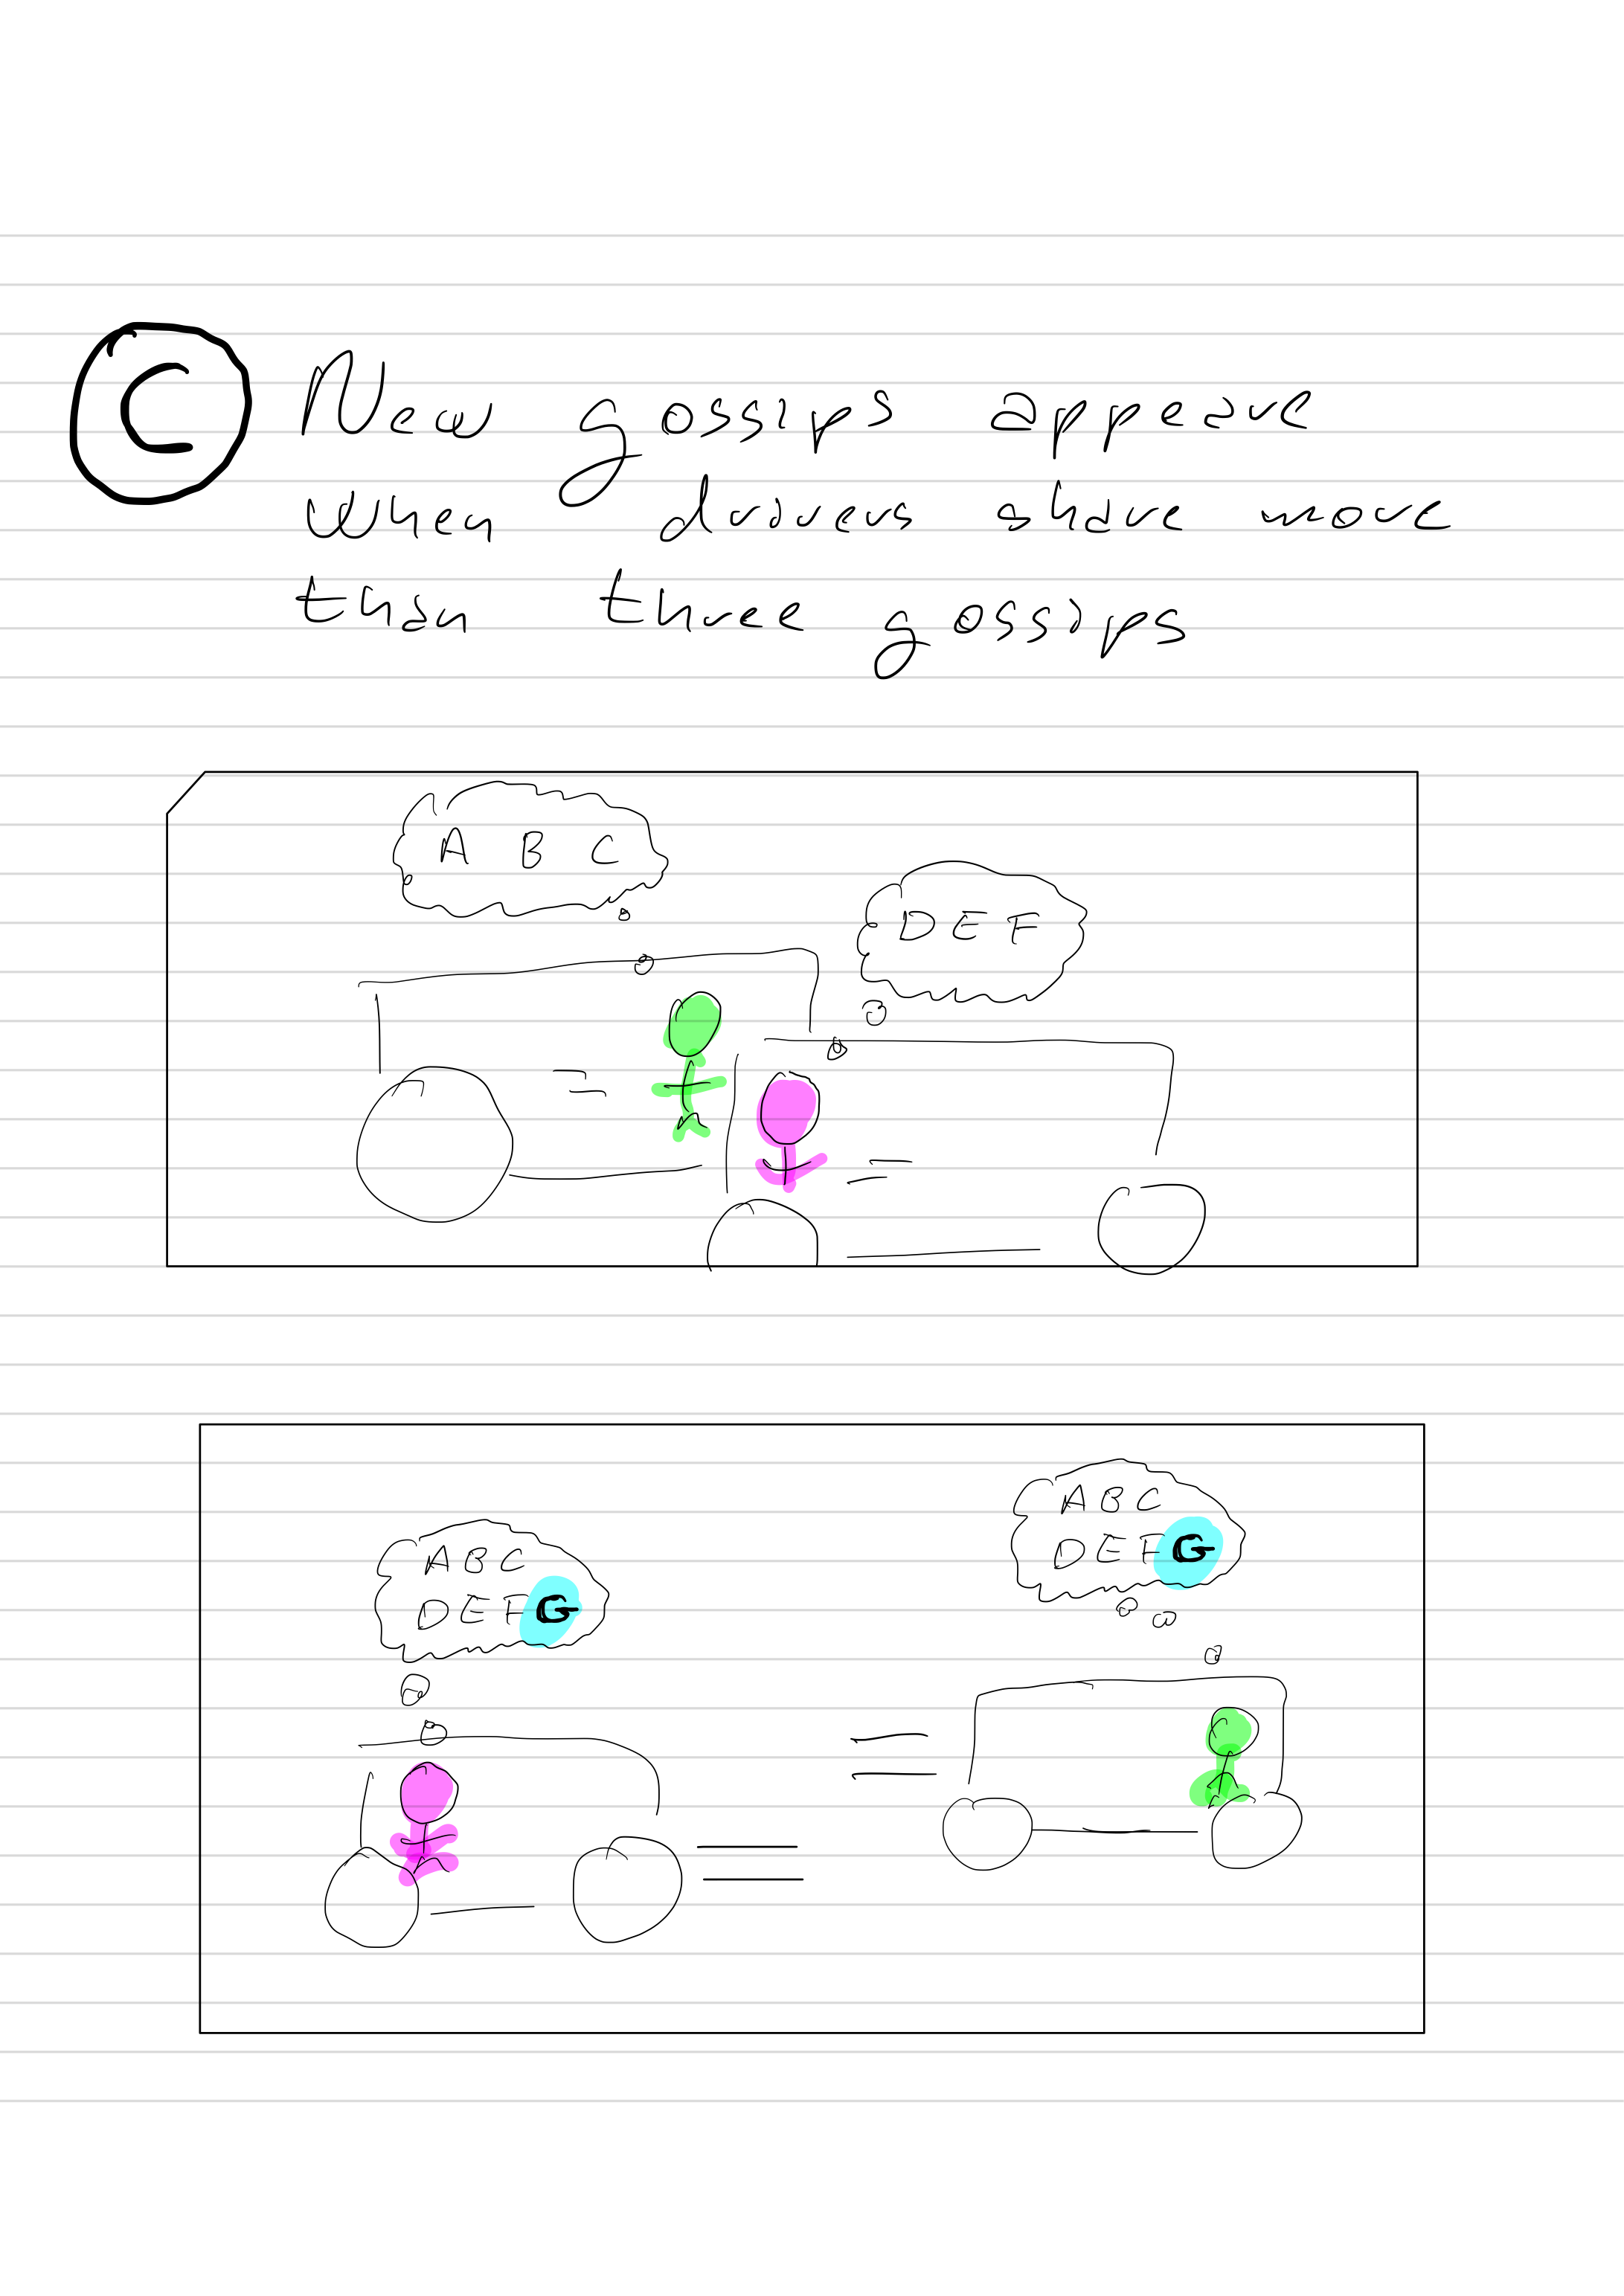 C New gossips appeare
when drivers share more
than three gossips
A B C
D E F
A B C
D E F G
A B C
D E F G